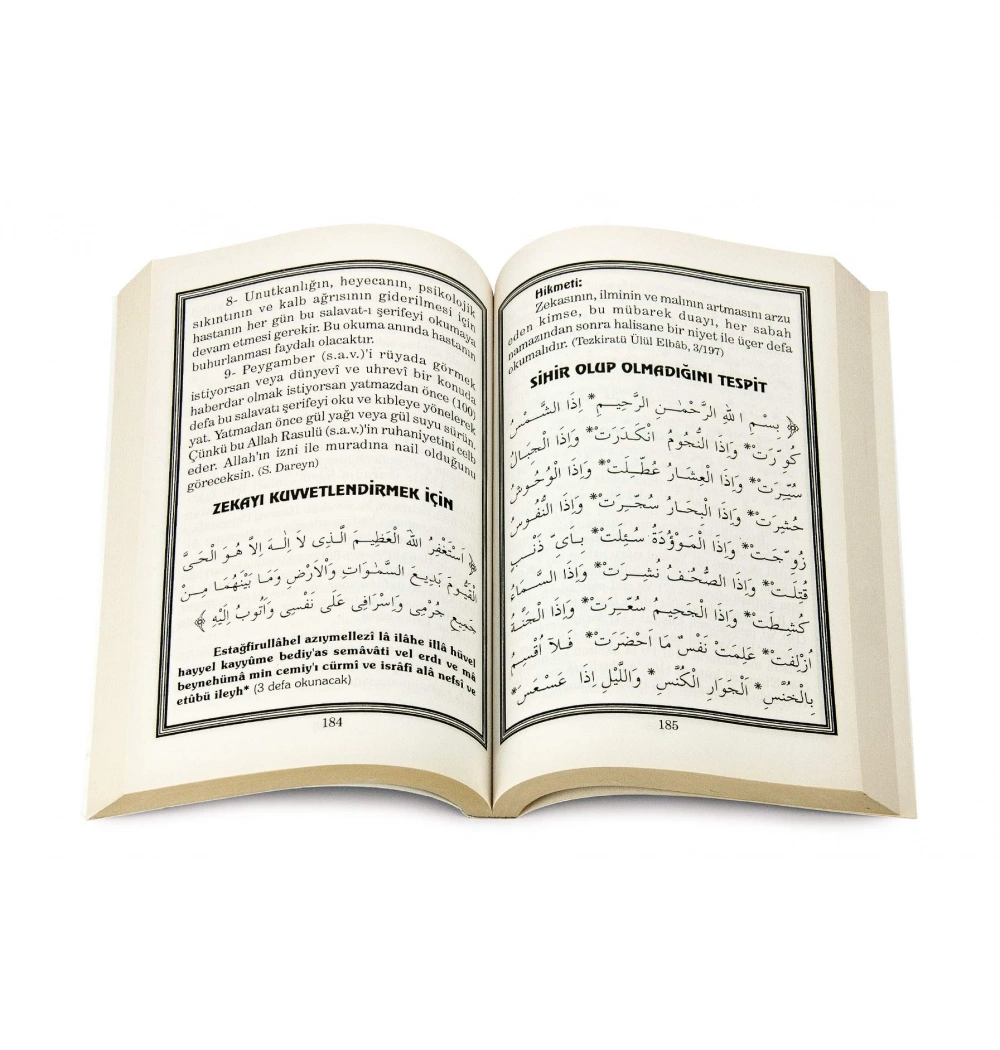 8- Unutkanlığın, heyecanın, psikolojik
sıkıntının ve kalb ağrısının giderilmesi için
hastanın her gün bu salavat-ı şerifeyi okumaya
devam etmesi gerekir. Bu okuma anında hastanın
buhurlanması faydalı olacaktır.
9- Peygamber (s.a.v.)'i rüyada görmek
istiyorsan veya dünyevî ve uhrevî bir konuda
haberdar olmak istiyorsan yatmazdan önce (100)
defa bu salavatı şerifeyi oku ve kıbleye yönelerek
yat. Yatmadan önce gül yağı veya gül suyu sürün.
Çünkü bu Allah Rasulü (s.a.v.)'in ruhaniyetini celb
eder. Allah'ın izni ile muradına nail olduğunu
göreceksin. (S. Dareyn)
ZEKAYI KUVVETLENDİRMEK İÇİN
﴿ اَسْتَغْفِرُ اللّٰهَ الْعَظِيمَ الَّذِى لَا اِلٰهَ اِلَّا هُوَ الْحَىَّ
الْقَيُّومَ بَدِيعَ السَّمٰوَاتِ وَالْاَرْضِ وَمَا بَيْنَهُمَا مِنْ
جَمِيعِ جُرْمِى وَاِسْرَافِى عَلٰى نَفْسِى وَاَتُوبُ اِلَيْهِ ﴾
Estağfirullâhel azıymellezî lâ ilâhe illâ hüvel
hayyel kayyûme bediy'as semâvâti vel erdı ve mâ
beynehümâ min cemiy'ı cürmî ve isrâfî alâ nefsî ve
etûbü ileyh* (3 defa okunacak)
184
Hikmeti:
Zekasının, ilminin ve malının artmasını arzu
eden kimse, bu mübarek duayı, her sabah
namazından sonra halisane bir niyet ile üçer defa
okumalıdır. (Tezkiratü Ülül Elbâb, 3/197)
SİHİR OLUP OLMADIĞINI TESPİT
﴿ بِسْمِ اللهِ الرَّحْمٰنِ الرَّحِيمِ* اِذَا الشَّمْسُ
كُوِّرَتْ* وَاِذَا النُّجُومُ انْكَدَرَتْ* وَاِذَا الْجِبَالُ
سُيِّرَتْ* وَاِذَا الْعِشَارُ عُطِّلَتْ* وَاِذَا الْوُحُوشُ
حُشِرَتْ* وَاِذَا الْبِحَارُ سُجِّرَتْ* وَاِذَا النُّفُوسُ
زُوِّجَتْ* وَاِذَا الْمَوْؤُدَةُ سُئِلَتْ* بِاَىِّ ذَنْبٍ
قُتِلَتْ* وَاِذَا الصُّحُفُ نُشِرَتْ* وَاِذَا السَّمَاءُ
كُشِطَتْ* وَاِذَا الْجَحِيمُ سُعِّرَتْ* وَاِذَا الْجَنَّةُ
اُزْلِفَتْ* عَلِمَتْ نَفْسٌ مَا اَحْضَرَتْ* فَلَا اُقْسِمُ
بِالْخُنَّسِ* اَلْجَوَارِ الْكُنَّسِ* وَاللَّيْلِ اِذَا عَسْعَسَ*
185